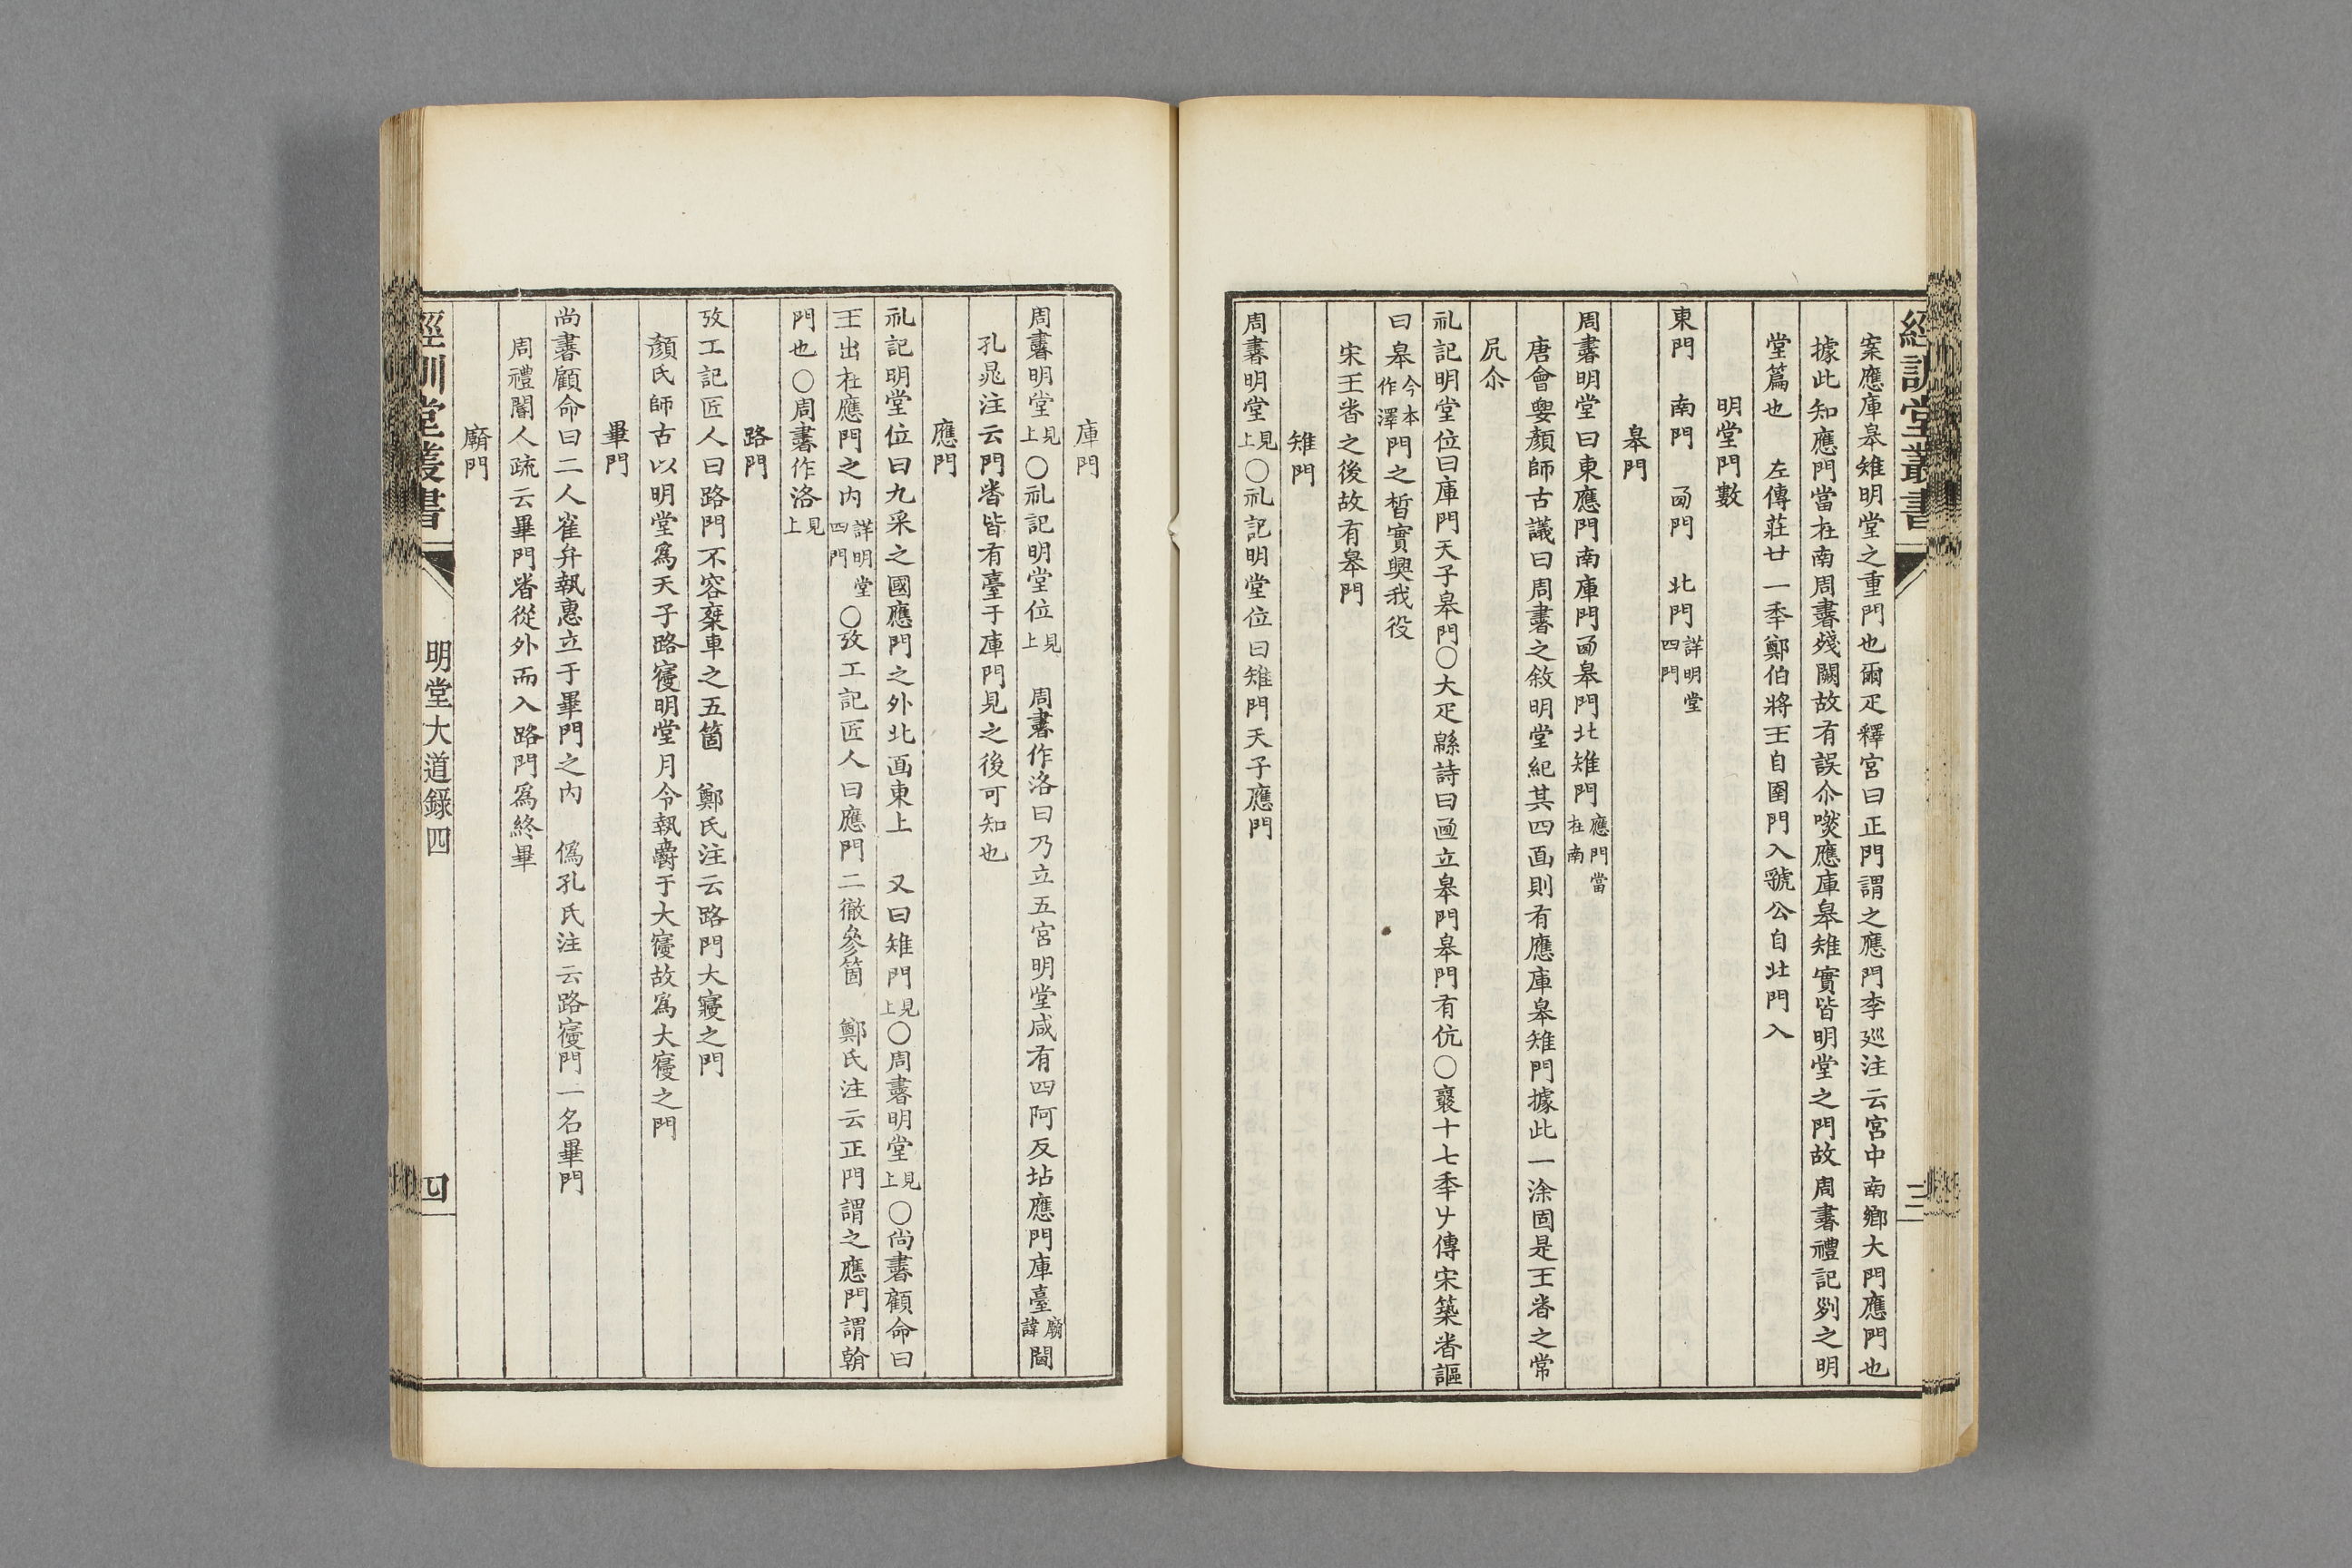 經訓堂叢書
三
案應庫皋雉明堂之重門也爾疋釋宮曰正門謂之應門李廵注云宮中南鄉大門應門也
據此知應門當在南周書殘闕故有誤尒啖應庫皋雉實皆明堂之門故周書禮記列之明
堂篇也 左傳莊廿一秊鄭伯將王自圉門入虢公自北門入
明堂門數
東門 南門 㢴門 北門詳明堂四門
皋門
周書明堂曰東應門南庫門㢴皋門北雉門應門當在南
唐會㚻顏師古議曰周書之敘明堂紀其四面則有應庫皋雉門據此一涂固是王者之常
凥尒
礼記明堂位曰庫門天子皋門○大疋緜詩曰迺立皋門皋門有伉○襄十七秊𠂇傳宋築者謳
曰皋今本作澤門之晳實興我役
宋王者之後故有皋門
雉門
周書明堂見上○礼記明堂位曰雉門天子應門
庫門
周書明堂見上○礼記明堂位見上 周書作洛曰乃立五宮明堂咸有四阿反坫應門庫臺廟諱閫
孔晁注云門者皆有臺于庫門見之後可知也
應門
礼記明堂位曰九采之國應門之外北面東上 又曰雉門見上○周書明堂見上○尚書顧命曰
王出在應門之内詳明堂四門○攷工記匠人曰應門二徹參箇 鄭氏注云正門謂之應門謂朝
門也○周書作洛見上
路門
攷工記匠人曰路門不容椉車之五箇 鄭氏注云路門大寢之門
顏氏師古以明堂爲天子路寢明堂月令執爵于大寢故爲大寢之門
畢門
尚書顧命曰二人雀弁執惠立于畢門之内 僞孔氏注云路寢門一名畢門
周禮閽人疏云畢門者從外而入路門爲終畢
廟門
經訓堂叢書
明堂大道錄四
四